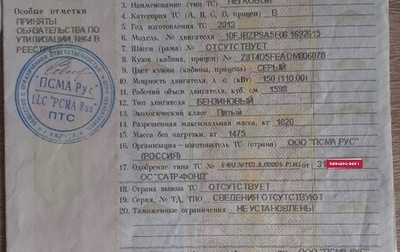 Особые отметки
ПРИНЯТЫ
ОБЯЗАТЕЛЬСТВА ПО
УТИЛИЗАЦИИ, №64 В
РЕЕСТРЕ
ПСМА Рус
LLC "PCMA Rus"
ПТС
3. Наименование (тип ТС) ЛЕГКОВОЙ
4. Категория ТС (А, В, С, D, прицеп) B
5. Год изготовления ТС 2013
6. Модель, № двигателя
7. Шасси (рама) № ОТСУТСТВУЕТ
8. Кузов (кабина, прицеп) №
9. Цвет кузова (кабины, прицепа) СЕРЫЙ
10. Мощность двигателя, л. с. (кВт) 150 (110.00)
11. Рабочий объем двигателя, куб. см 1598
12. Тип двигателя БЕНЗИНОВЫЙ
13. Экологический класс Пятый
14. Разрешенная максимальная масса, кг 1820
15. Масса без нагрузки, кг 1475
16. Организация – изготовитель ТС (страна) ООО "ПСМА РУС"
(РОССИЯ)
17. Одобрение типа ТС № от
ОС "САТР-ФОНД"
18. Страна вывоза ТС ОТСУТСТВУЕТ
19. Серия, № ТД, ТПО СВЕДЕНИЯ ОТСУТСТВУЮТ
20. Таможенные ограничения НЕ УСТАНОВЛЕНЫ